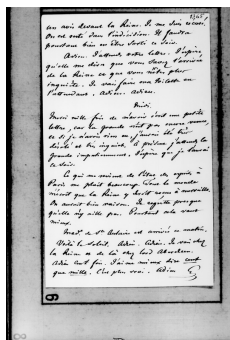 2365
un avis devant la Reine. Je me suis excusé,
On est resté dans l'indécision. Il faudra
pourtant bien en être sorti ce soir.
Adieu. J'attends votre lettre. J'espère
qu'elle me dira que vous savez l'arrivée
de la Reine et que vous n'êtes plus
inquiète. Je vais faire ma toilette en
l'attendant. Adieu. Adieu.
Midi.
Merci mille fois de m'avoir écrit une petite
lettre, car la grande n'est pas encore venue,
et si je n'avais rien eu, j'aurais été bien
désolé et bien inquiet. A présent j'attends la
grande impatiemment. J'espère que je l'aurai
ce soir.
Ce qui me vient de
Paris me plaît beaucoup. Tout le monde
On aurait bien raison. Je regrette presque
qu'elle n'y aille pas. Pourtant cela vaut
mieux.
Mad. de Ste Aulaire est arrivée ce matin.
Voilà le soleil. Adieu. Adieu. Je vais chez
la Reine et de là chez lord Aberdeen.
Adieu cent fois. J'aime mieux dire cent
que mille. C'est plus vrai. Adieu
6